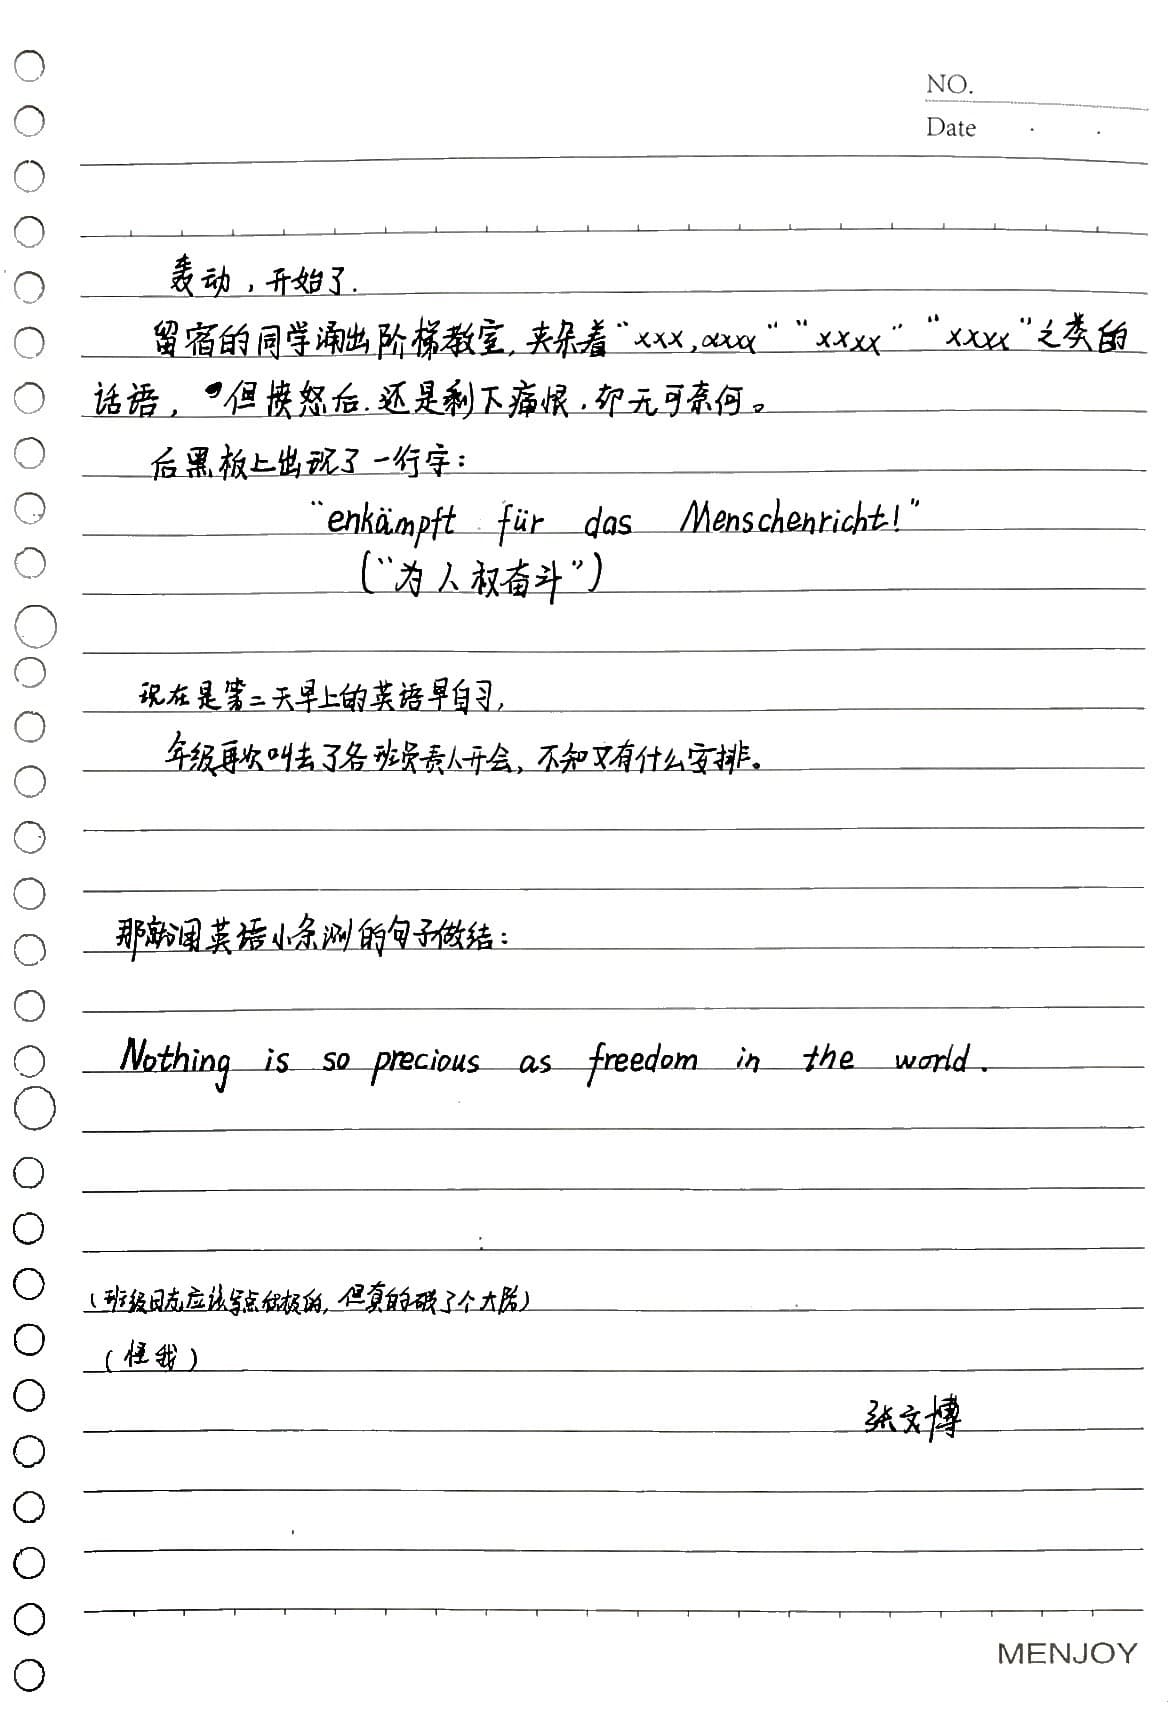 NO.
Date . .
轰动，开始了.
留宿的同学涌出阶梯教室,夹杂着“xxx,xxxx”“xxxx”“xxxx”之类的
话语，但愤怒后.还是剩下痛恨.却无可奈何。
后黑板上出现了一行字：
“enkämpft für das Menschenricht!”
(“为人权奋斗”)
现在是第二天早上的英语早自习,
年级再次叫去了各班负责人开会,不知又有什么安排。
那就用英语小条测的句子做结：
Nothing is so precious as freedom in the world.
(班级日志应该写点积极的,但真的破了个大防)
(怪我)
张文博
MENJOY